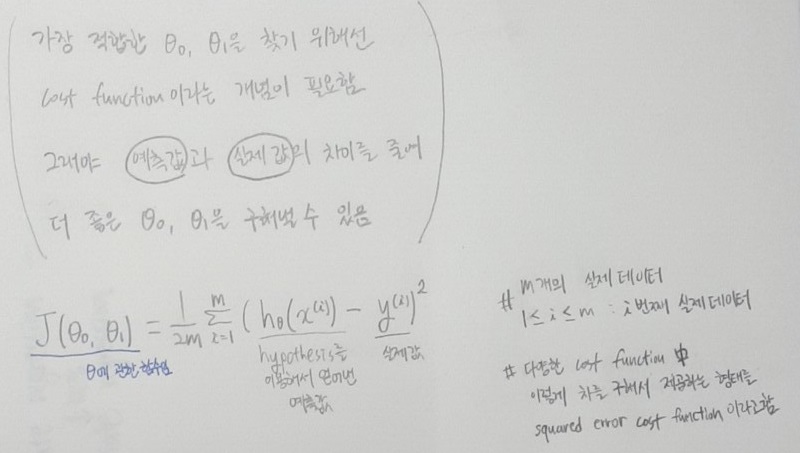 가장 적합한 θ0, θ1을 찾기 위해선
cost function이라는 개념이 필요함
그래야 예측값과 실제 값의 차이를 줄여
더 좋은 θ0, θ1을 구해낼 수 있음
J(θ0, θ1) = 1/2m Σ_{i=1}^{m} (hθ(x^(i)) - y^(i))^2
θ에 관한 함수임
hypothesis를
이용해서 얻어낸
예측값
실제값
# m개의 실제 데이터
1 ≤ i ≤ m : i번째 실제 데이터
# 다양한 cost function 中
이렇게 차를 구해서 제곱하는 형태를
squared error cost function 이라고함